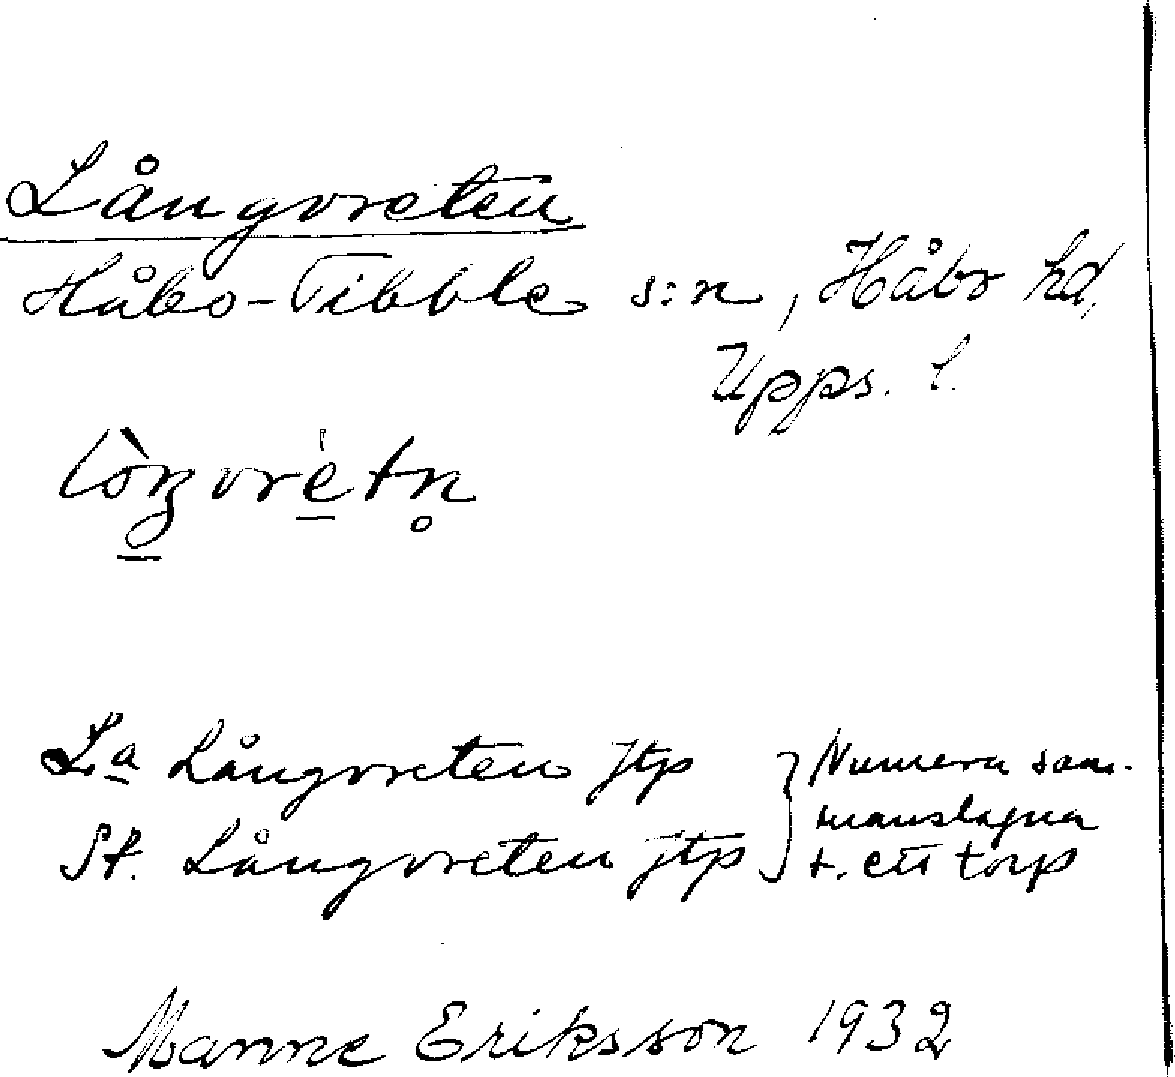 Långvreten
Håbo-Tibble s:n, Håbo hd,
Upps. l.
lòŋvrètn̥
La Långvreten jtp } Numera sam-
manslagna
St. Långvreten jtp } t. ett torp
Manne Eriksson 1932